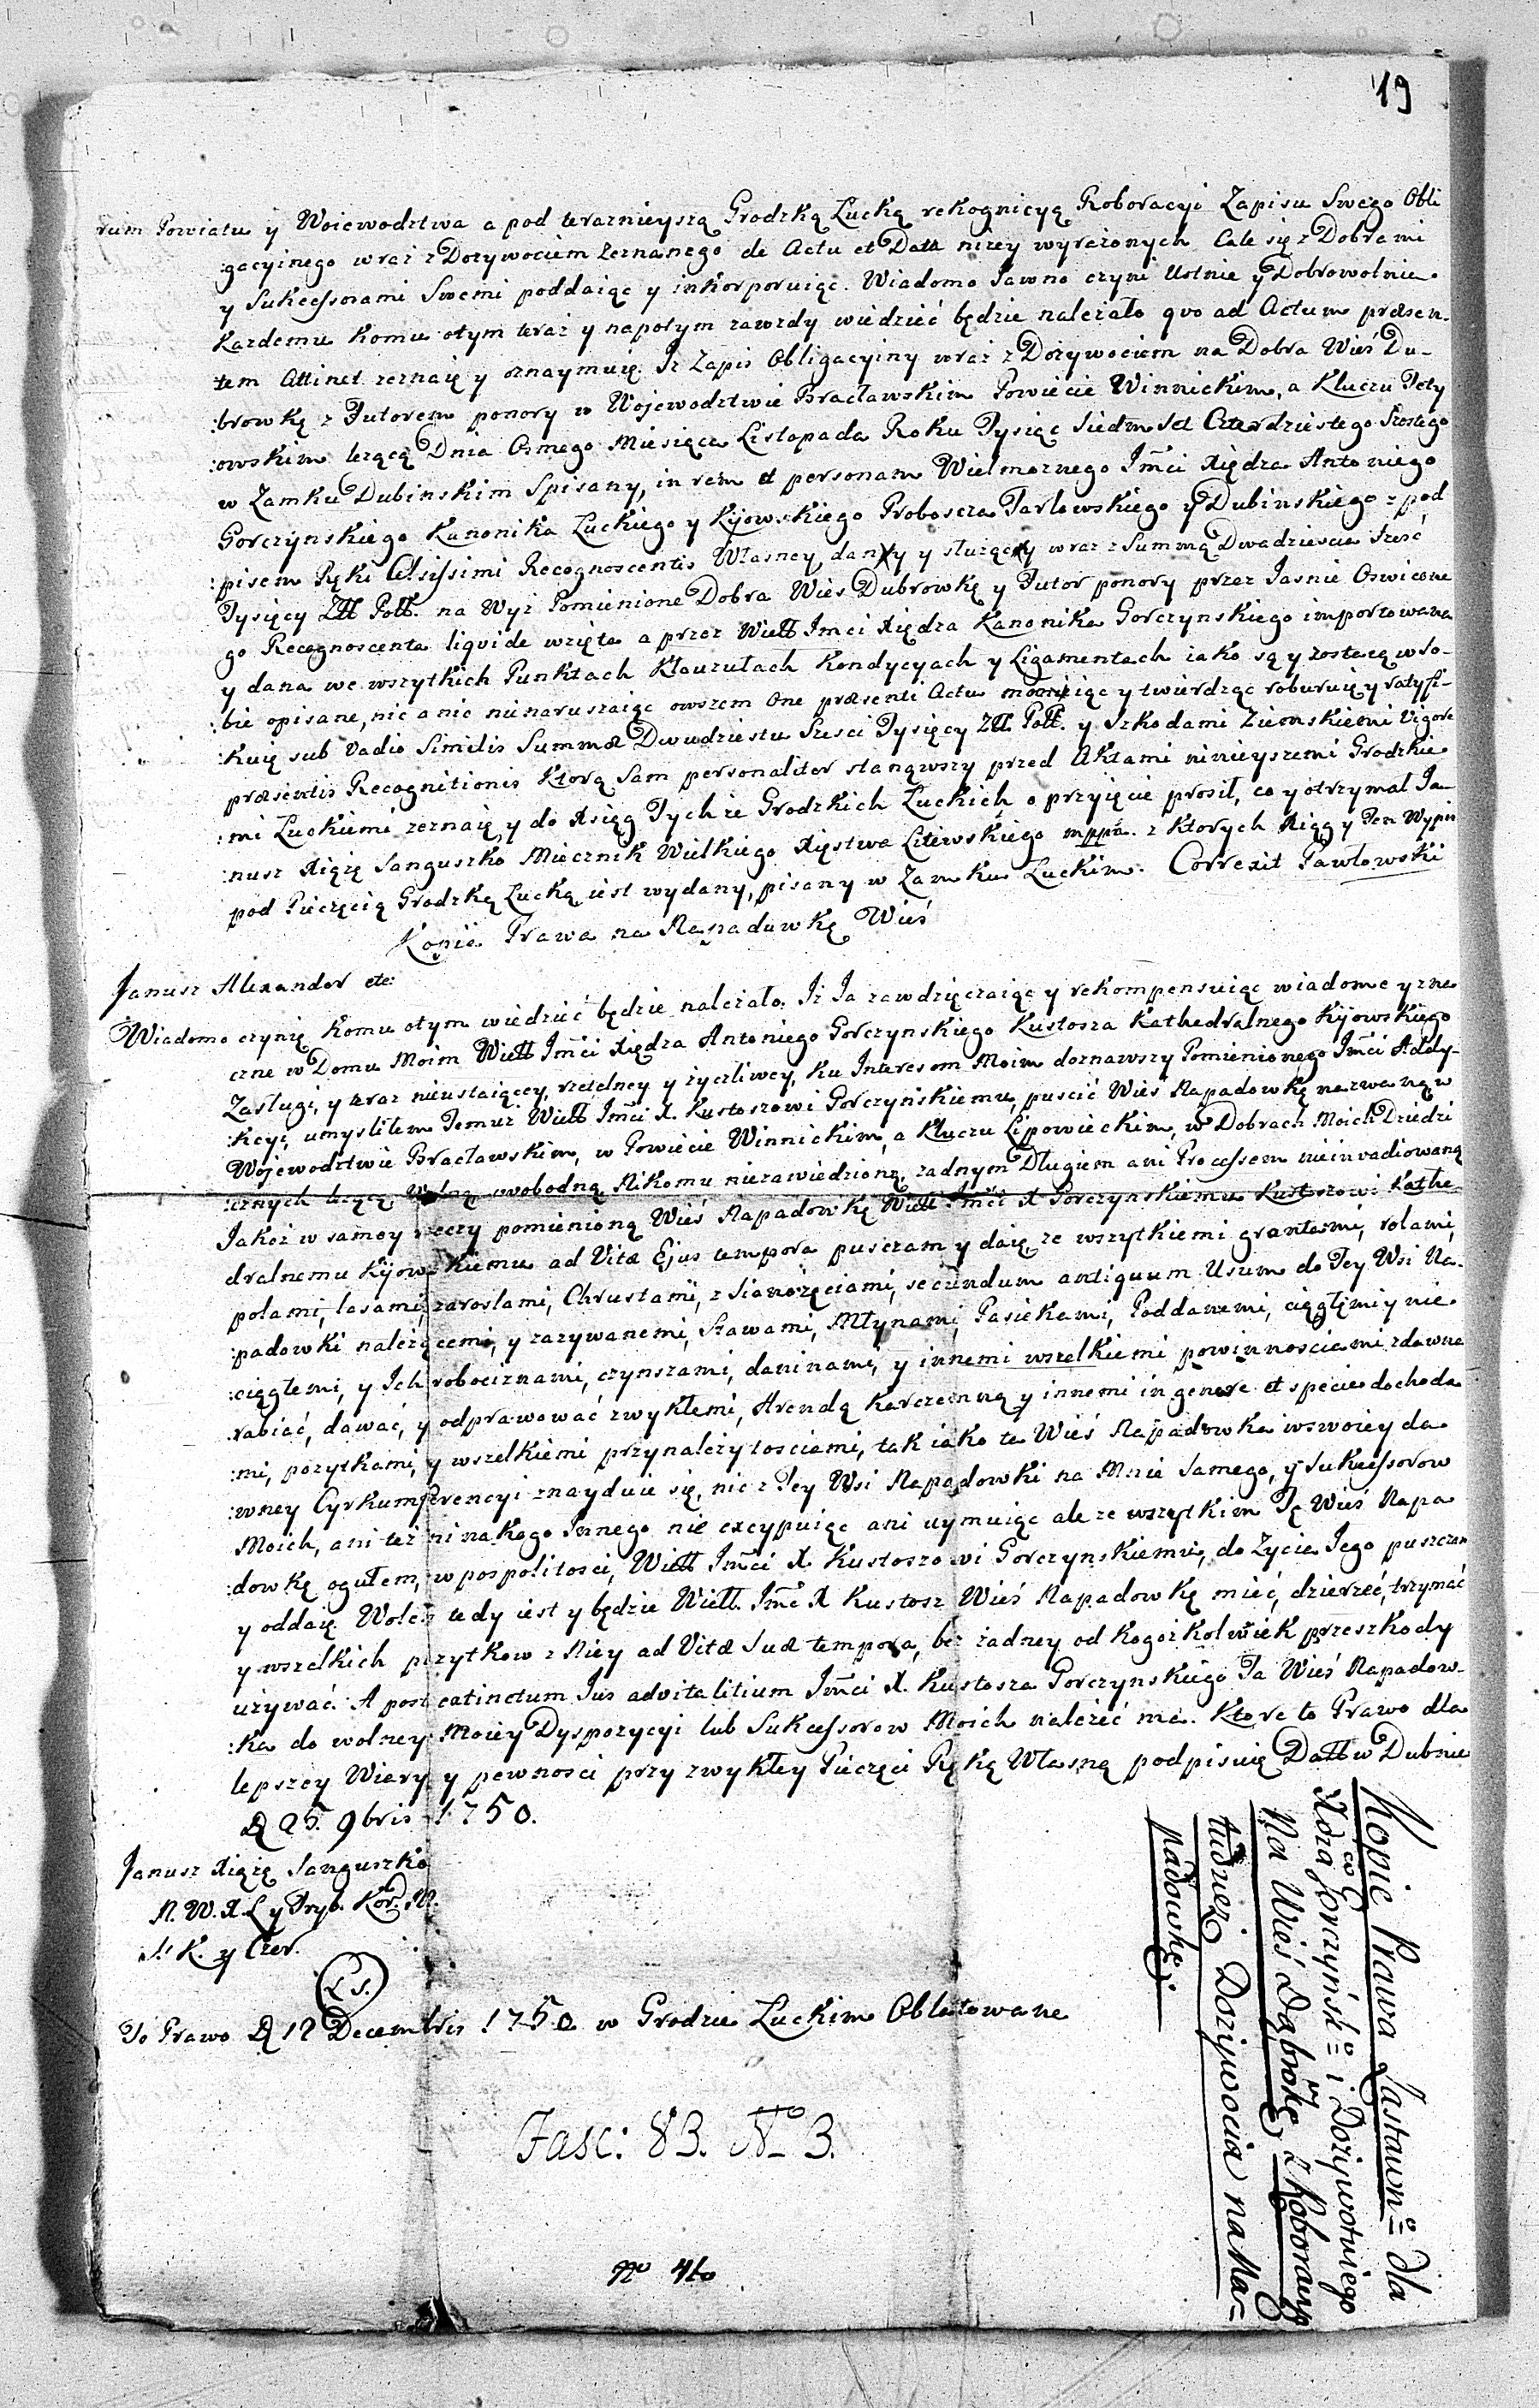 19
rum Powiatu y Woiewodztwa a pod terazniejszą Grodzką Lucką rekognicyą Roboracyi Zapisu Swego Obli
:gacyinego wraz z Dozywociem zeznanego de Actu et Data nizey wyrażonych Cale się z Dobrami
y Sukcessorami Swemi poddaiąc y inkorporuiąc. Wiadomo Jawno czyni Ustnie y Dobrowolnie
Kazdemu komu otym teraz y napotym zawzdy wiedzieć będzie nalezało quo ad Actum præsen-
tem Attinet zeznaię y oznaymuię. Iz Zapis Obligacyiny wraz z Dożywociem na Dobra Wieś Du-
:browkę z Futorem ponory w Wojewodztwie Bracławskim Powiecie Winnickim, a Kluczu Tety
:owskim lezącą Dnia Osmego Miesiąca Listopada Roku Tysiąc Siedm Set Czterdziestego Szostego
w Zamku Dubinskim Spisany, in rem et personam Wielmoznego Jm̃ci Xiędza Antoniego
Gorczynskiego Kanonika Luckiego y Kijowskiego Proboszcza Tarlowskiego y Dubinskiego z pod
:pisem Ręki Celsissimi Recognoscentis Własney dany y służący wraz z Summą Dwadziescia sześć
Tysięcy Złł Poll. na Wyż Pomienione Dobra Wieś Dubrowkę y Futor ponory przez Jasnie Oswiecone
go Recognoscenta liqvide wzięta a przez Wiell Jmci Xiędza Kanonika Gorczynskiego importowana
y dana we wszytkich Punktach Klauzułach Kondycyach y Ligamentach iako są y zostaią w so-
:bie opisane, nic a nic nienaruszaiąc owszem one præsenti Actu mocniąc y twierdząc roboruię y ratyfi-
:kuię sub vadio Similis Summæ Dwudziestu Szesci Tysięcy Złł. Poll. y Szkodami Ziemskiemi Vigore
præsentis Recognitionis Ktorą Sam personaliter stanąwszy przed Aktami ninieyszemi Grodzkie
:mi Luckiemi zeznaię y do Xsiąg Tychże Grodzkich Luckich o przyięcie prosił, co y otrzymał Ja-
:nusz Xiążę Sanguszko Miecznik Wielkiego Xięstwa Litewskiego mppa. z Ktorych Xiąg y Ten Wypis
pod Pieczęcią Grodzką Lucką iest wydany, pisany w Zamku Luckim. Correxit Pawłowski
Kopia Prawa na Napadowkę Wieś
Janusz Alexander etc:
Wiadomo czynię komu otym wiedzieć będzie należało. Iż Ja zawdzięczaiąc y rekompensuiąc wiadome y zna
czne w Domu Moim Wiell Jm̃ci Xiędza Antoniego Gorczynskiego Kustosza Kathedralnego Kijowskiego
Zasługi, y teraz nieustaiącey, rzetelney y życzliwey, ku Interesom Moim doznawszy Pomienionego Jm̃ci Addy-
:kcyi, umyslilem Temuż Wiell Jm̃ci X. Kustoszowi Gorczyńskiemu, puscić Wieś Napadowkę nazwaną w
Wojewodztwie Bracławskim, w Powiecie Winnickim, a Kluczu Lipowieckim, w Dobrach Moich Dziedzi
:cznych lezącą Wolną swobodną Nikomu niezawiedzioną, zadnym Długiem ani Processem nieinvadiowaną
Jakoż w samey rzeczy pomienioną Wieś Napadowkę Wiell Jm̃ci X Gorczynskiemu Kustoszowi Kathe
dralnemu Kijowskiemu ad Vitæ Ejus tempora puszczam y daię, ze wszytkiemi gruntami, rolami,
polami, lasami, zaroslami, Chrustami, z Sianożęciami, secundum antiquum Usum do Tey Wsi Na-
:padowki należącemi, y zazywanemi, Stawami, Młynami, Pasiekami, Poddanemi, ciągłemi y nie
:ciągłemi, y Ich robociznami, czynszami, daninami, y innemi wszelkiemi powinnosciami zdawna
:rabiać, dawać, y odprawować zwykłemi, Arendą Karczemną y innemi in genere et specie dochoda
:mi, pożytkami, y wszelkiemi przynależytosciami, tak iako ta Wieś Napadowka w swoiey da
:wney Cyrkumferencyi znayduie się, nic z Tey Wsi Napadowki na Mnie Samego, y Sukcessorow
Moich, ani też ni na kogo Innego nie excypuiąc ani uymuiąc ale ze wszytkim Tę Wieś Napa
:dowkę ogułem, w pospolitosci, Wiell Jm̃ci X. Kustoszowi Gorczynskiemu, do Zycia Jego puszczam
y oddaię. Wolen tedy iest y będzie Wiell. Jm̃ć X Kustosz Wieś Napadowkę mieć, dzierżeć, trzymać
y wszelkich pożytkow z Niey ad Vitæ Suæ tempora, bez żadney od kogoż kolwiek przeszkody
używać. A post extinctum Jus advitalitium Jm̃ci X. Kustosza Gorczynskiego Ta Wieś Napadow-
:ka do wolney Moiey Dyspozycyi lub Sukcessorow Moich należeć ma. Ktore to Prawo dla
lepszey Wiary y pewnosci przy zwykłey Pieczęci Ręką Własną podpisuię Datt w Dubnie
D 25. 9bris 1750.
Janusz Xiążę Sanguszko
M. W. X. L y Tryb. Kor. M.
S. K. y Czer.
(L S.)
To Prawo D 12 Decembris 1750 w Grodzie Luckim Oblatowane
Fasc: 83. No 3.
No 46
Kopie Prawa Zastawn:o dla
Xdza Gorczyńsk:o i Dożywotniego
Na Wieś Dąbrówkę z Roboracyą
tudzież Dożywocia na Na=
padówkę.